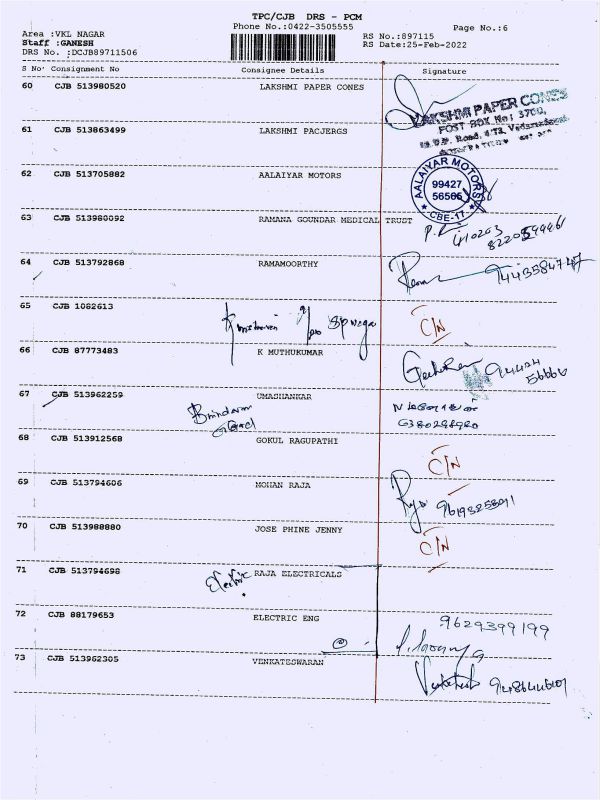 TPC/CJB DRS - PCM
Phone No.:0422-3505555
Page No.:6
Area :VKL NAGAR
Staff :GANESH
DRS No. :DCJB89711506
RS No :897115
RS Date:25-Feb-2022
S No Consignment No Consignee Details Signature
60 CJB 513980520 LAKSHMI PAPER CONES
LAKSHMI PAPER CONES
POST BOX No: 3760,
61 CJB 513863499 LAKSHMI PACJERGS
62 CJB 513705882 AALAIYAR MOTORS
AALAIYAR MOTORS
99427
56565
★ CBE-17 ★
63 CJB 513980092 RAMANA GOUNDAR MEDICAL TRUST
64 CJB 513792868 RAMAMOORTHY
9443584747
65 CJB 1082613
C/N
66 CJB 87773483 K MUTHUKUMAR
94424
56666
67 CJB 513962259 UMASHANKAR
6380298980
68 CJB 513912568 GOKUL RAGUPATHI
C/N
69 CJB 513794606 MOHAN RAJA
70 CJB 513988880 JOSE PHINE JENNY
C/N
71 CJB 513794698 RAJA ELECTRICALS
Electric
72 CJB 88179653 ELECTRIC ENG
9629399199
73 CJB 513962305 VENKATESWARAN